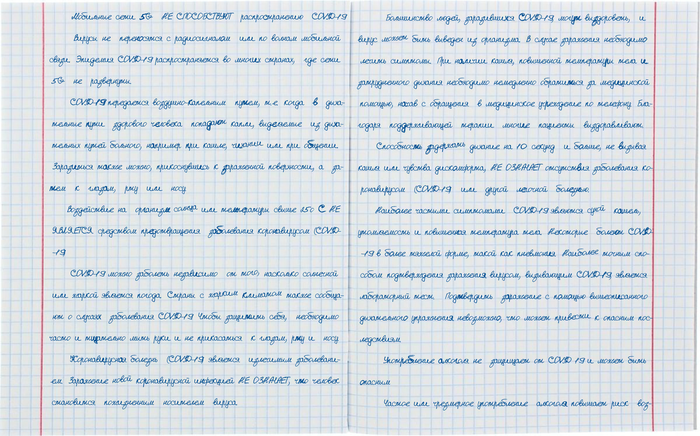 Мобильные сети 5G НЕ СПОСОБСТВУЮТ распространению COVID-19
Вирусы не переносятся с радиосигналом или по волнам мобильной
связи Эпидемия COVID-19 распространяется во многих странах, где сети
5G не развернуты.
COVID-19 передается воздушно-капельным путем, т.е когда в дыха-
тельные пути здорового человека попадают капли, выделяемые из дыха-
тельных путей больного, например при кашле, чихании или при общении
Заразиться также можно, прикоснувшись к зараженной поверхности, а за-
тем к глазам, рту или носу
Воздействие на организм солнца или температуры свыше 250 С НЕ
ЯВЛЯЕТСЯ средством предотвращения заболевания коронавирусом (COVID-
-19
COVID-19 можно заболеть независимо от того, насколько солнечной
или жаркой является погода Страны с жарким климатом также сообща-
ют о случаях заболевания COVID-19 Чтобы защитить себя, необходимо
часто и тщательно мыть руки и не прикасаться к глазам, рту и носу
Коронавирусная болезнь (COVID-19 является излечимым заболевани-
ем Заражение новой коронавирусной инфекцией НЕ ОЗНАЧАЕТ, что человек
становится пожизненным носителем вируса
Большинство людей, заразившихся COVID-19 могут выздороветь, и
вирус может быть выведен из организма В случае заражения необходимо
лечить симптомы При наличии кашля, повышенной температуры тела и
затрудненного дыхания необходимо немедленно обратиться за медицинской
помощью, начав с обращения в медицинское учреждение по телефону Бла-
годаря поддерживающей терапии многие пациенты выздоравливают
Способность задержать дыхание на 10 секунд и больше, не вызывая
кашля или чувства дискомфорта, НЕ ОЗНАЧАЕТ отсутствия заболевания ко-
ронавирусом (COVID-19 или другой легочной болезнью
Наиболее частыми симптомами COVID-19 являются сухой кашель,
утомляемость и повышенная температура тела Некоторые болеют COVID-
-19 в более тяжелой форме, такой как пневмония Наиболее точным спо-
собом подтверждения заражения вирусом, вызывающим COVID-19 является
лабораторный тест Подтвердить заражение с помощью вышеописанного
дыхательного упражнения невозможно, что может привести к опасным пос-
ледствиям
Употребление алкоголя не защищает от COVID-19 и может быть
опасным
Частое или чрезмерное употребление алкоголя повышает риск воз-